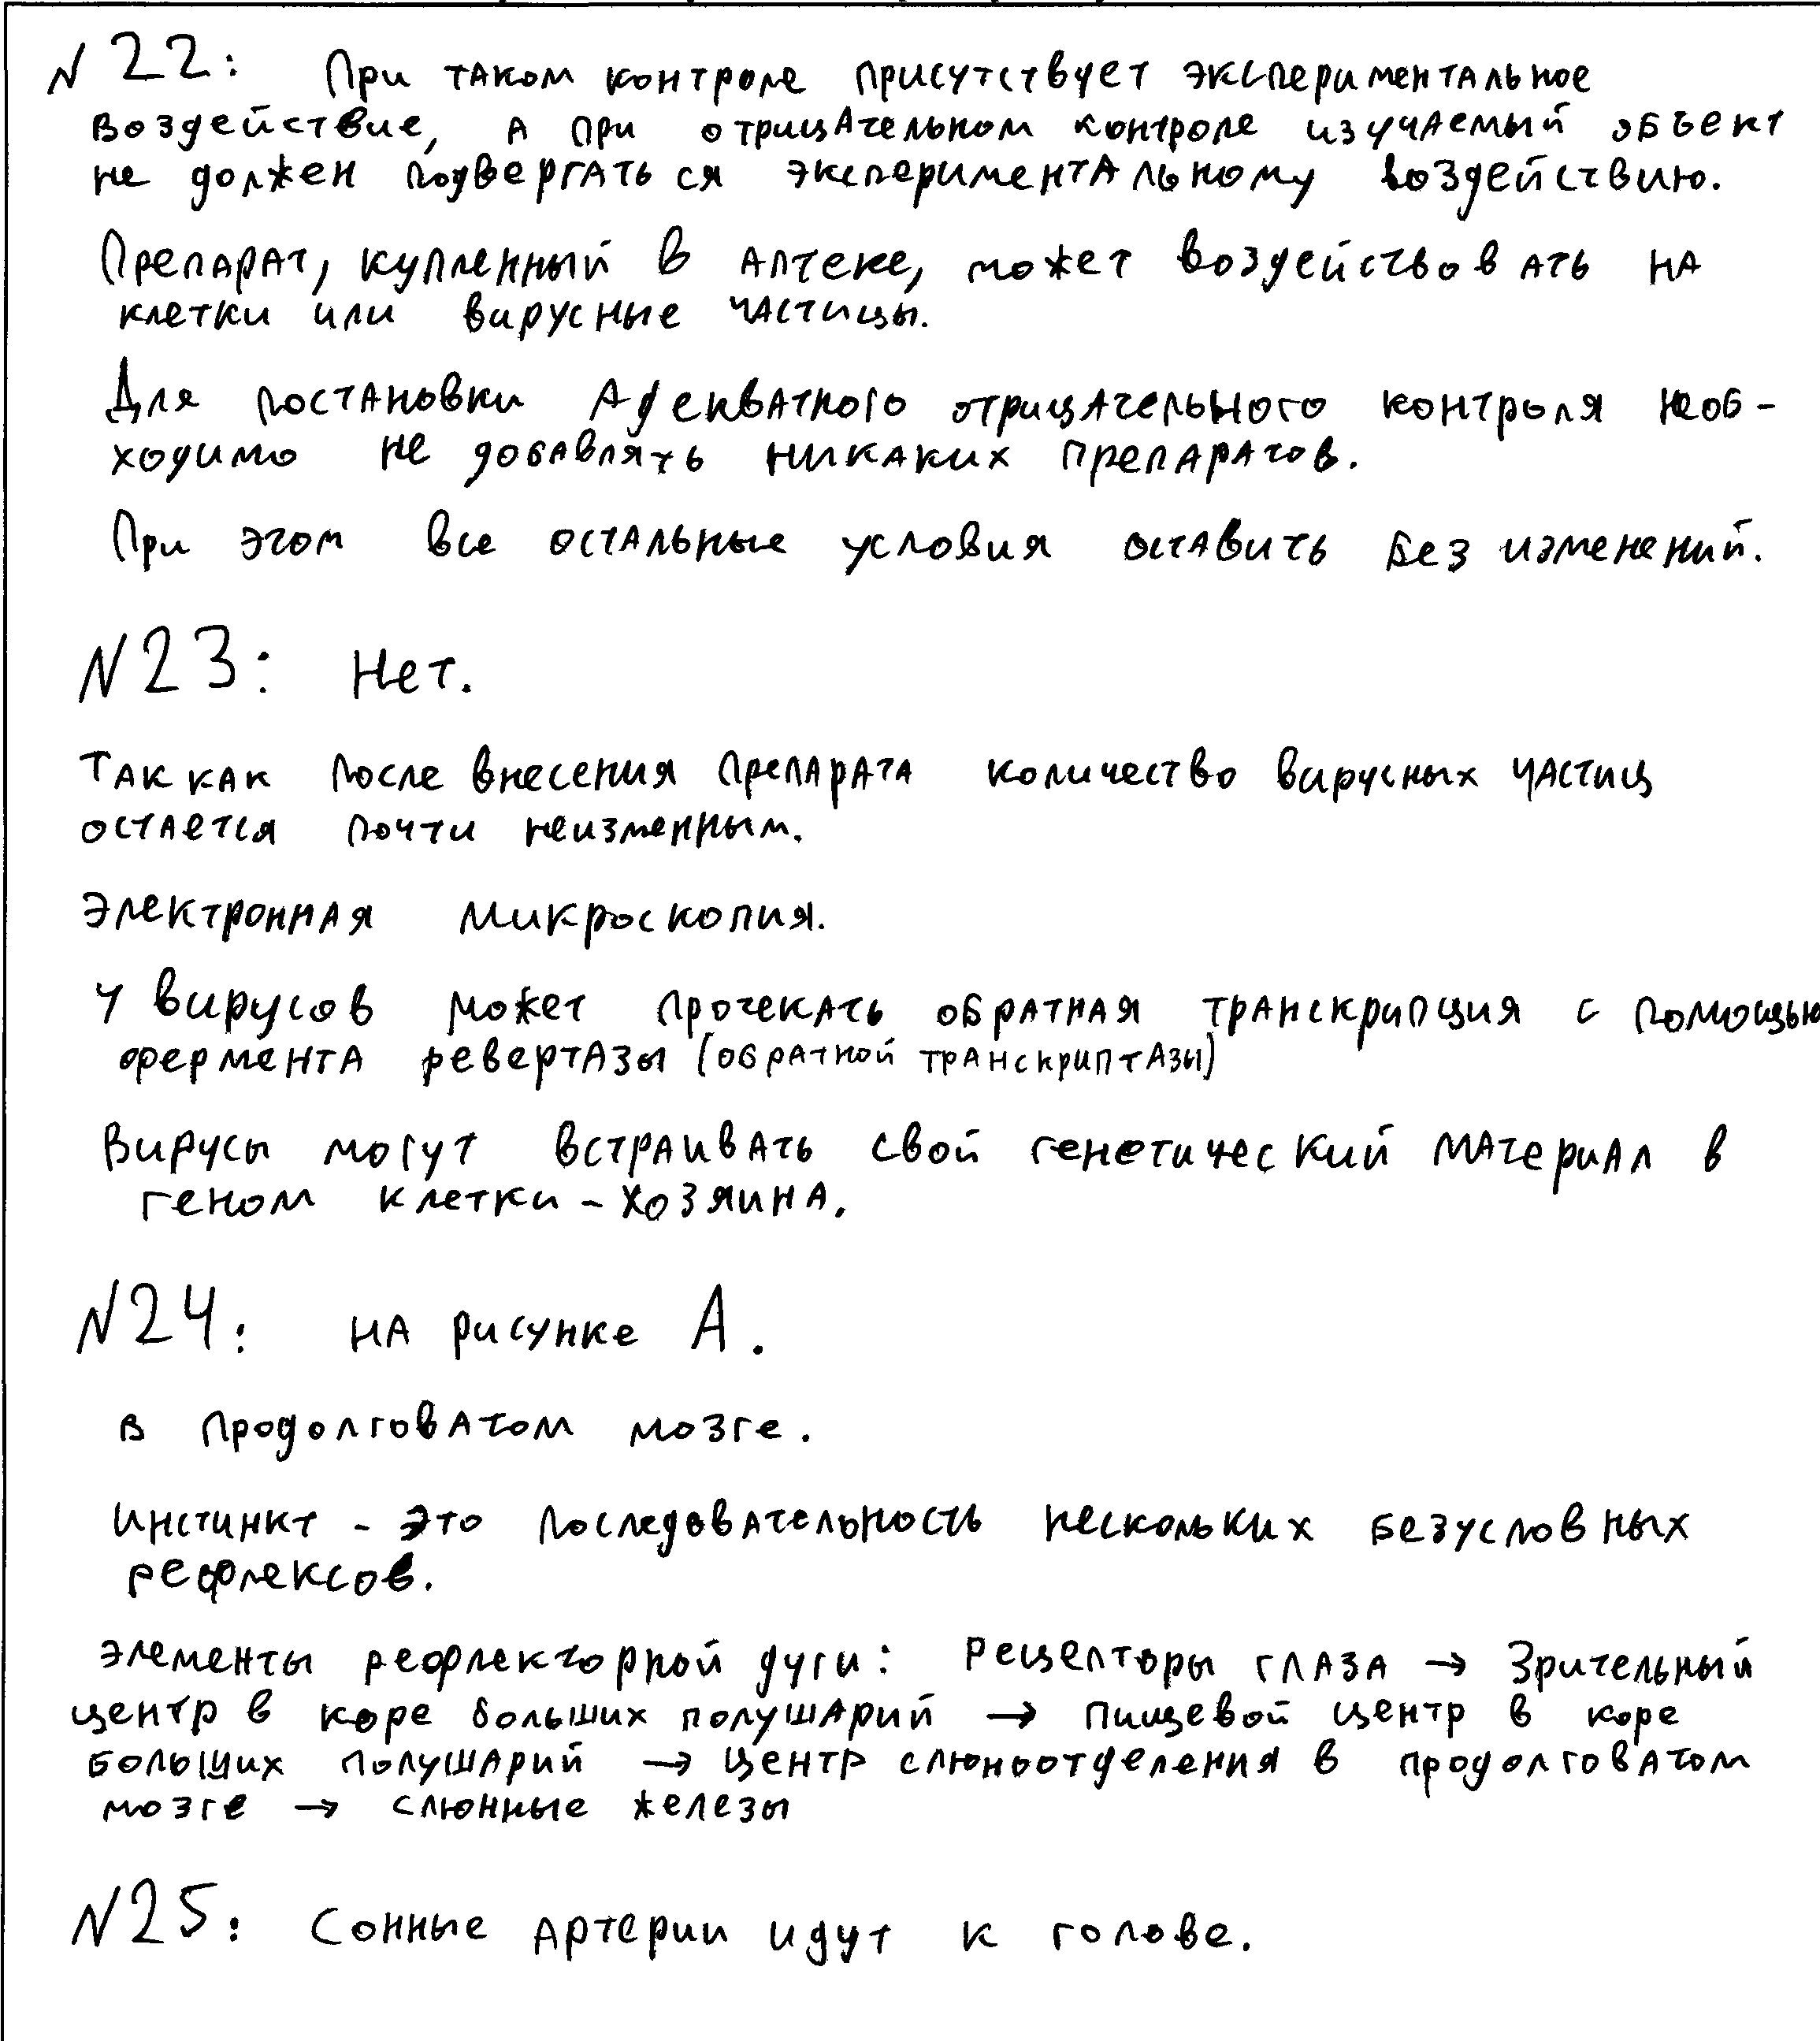 N 22: При таком контроле присутствует экспериментальное
воздействие, а при отрицательном контроле изучаемый объект
не должен подвергаться экспериментальному воздействию.
Препарат, купленный в аптеке, может воздействовать на
клетки или вирусные частицы.
Для постановки адекватного отрицательного контроля необ-
ходимо не добавлять никаких препаратов.
При этом все остальные условия оставить без изменений.
N23: Нет.
Так как после внесения препарата количество вирусных частиц
остается почти неизменным.
Электронная микроскопия.
У вирусов может протекать обратная транскрипция с помощью
фермента ревертазы (обратной транскриптазы)
Вирусы могут встраивать свой генетический материал в
геном клетки-хозяина.
N24: на рисунке А.
в продолговатом мозге.
Инстинкт - это последовательность нескольких безусловных
рефлексов.
Элементы рефлекторной дуги: Рецепторы глаза → Зрительный
центр в коре больших полушарий → пищевой центр в коре
больших полушарий → центр слюноотделения в продолговатом
мозге → слюнные железы
N25: Сонные артерии идут к голове.